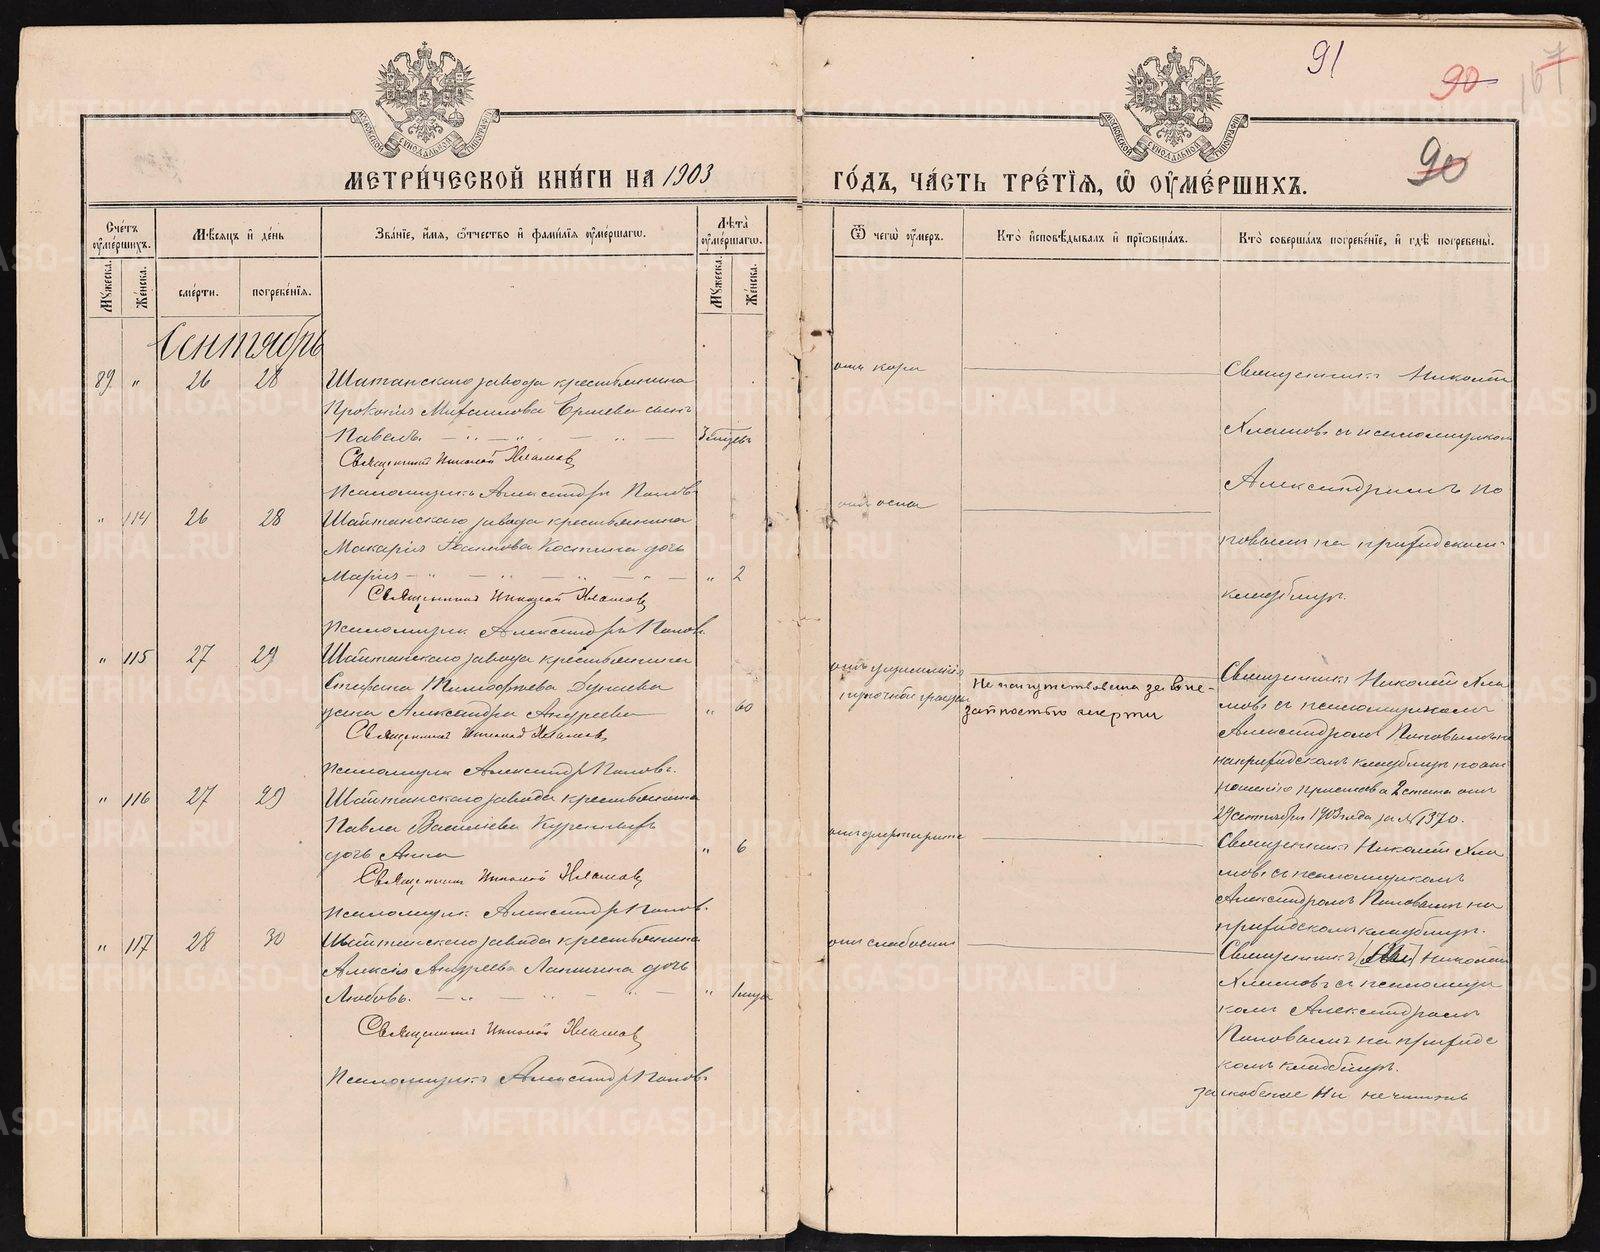 91
90
167
90
МЕТРИ́ЧЕСКОЙ КНИ́ГИ НА 1903
ГО́ДЪ, ЧА́СТЬ ТРЕ́ТЇѦ, Ѿ ОУМЕ́РШИХЪ.
Сче́тъ оуме́ршихъ.
Мѣсѧцъ и де́нь
Зва́нїе, и́мѧ, о́тчество и фами́лїѧ оуме́ршагѡ.
Лѣта̀ оуме́ршагѡ.
Ѿ чегѡ̀ оу́меръ.
Кто̀ исповѣ́дывалъ и прїѡбща́лъ.
Кто̀ соверша́лъ погребе́нїе, и гдѣ̀ погребены̀.
Мꙋжеска.
Же́нска.
сме́рти.
погребе́нїѧ.
Мꙋжеска.
Же́нска.
Сентябрь
89 " 26 28 Шайтанскаго завода крестьянина
Прокопія Михаилова Ершева сынъ
Павелъ
отъ кори
Священникъ Николай Хламовъ
Псаломщикъ Александръ Поповъ
Священникъ Николай
Хламовъ съ псаломщикомъ
Александромъ По
повымъ на приходскомъ
кладбищѣ.
" 114 26 28 Шайтанскаго завода крестьянина
Макарія Костина дочь
Марія " 2
отъ оспы
Священникъ Николай Хламовъ
Псаломщикъ Александръ Поповъ
" 115 27 29 Шайтанскаго завода крестьянина
Стефана Тимофѣева Дунаева
жена Александра Андреева " 60
Священникъ Николай Хламовъ
Псаломщикъ Александръ Поповъ.
отъ ущемленія
грыжи
Не напутствована за вне-
запностью смерти
Священникъ Николай Хла
мовъ съ псаломщикомъ
Александромъ Поповымъ на
приходскомъ кладбищѣ по от
ношенію пристава 2 стана отъ
29 сентября 1903 года за № 1370.
" 116 27 29 Шайтанскаго завода крестьянина
Павла Васильева
дочь Анна " 6
Священникъ Николай Хламовъ
Псаломщикъ Александръ Поповъ.
отъ дифтерита
Священникъ Николай Хла
мовъ съ псаломщикомъ
Александромъ Поповымъ на
приходскомъ кладбищѣ.
" 117 28 30 Шайтанскаго завода крестьянина
Алексія Андреева Лапшина дочь
Любовь. "
Священникъ Николай Хламовъ
Псаломщикъ Александръ Поповъ
отъ слабости
Священникъ Николай
Хламовъ съ псаломщи
комъ Александромъ
Поповымъ на приходс
комъ кладбищѣ.
не читать
METRIKI.GASO-URAL.RU